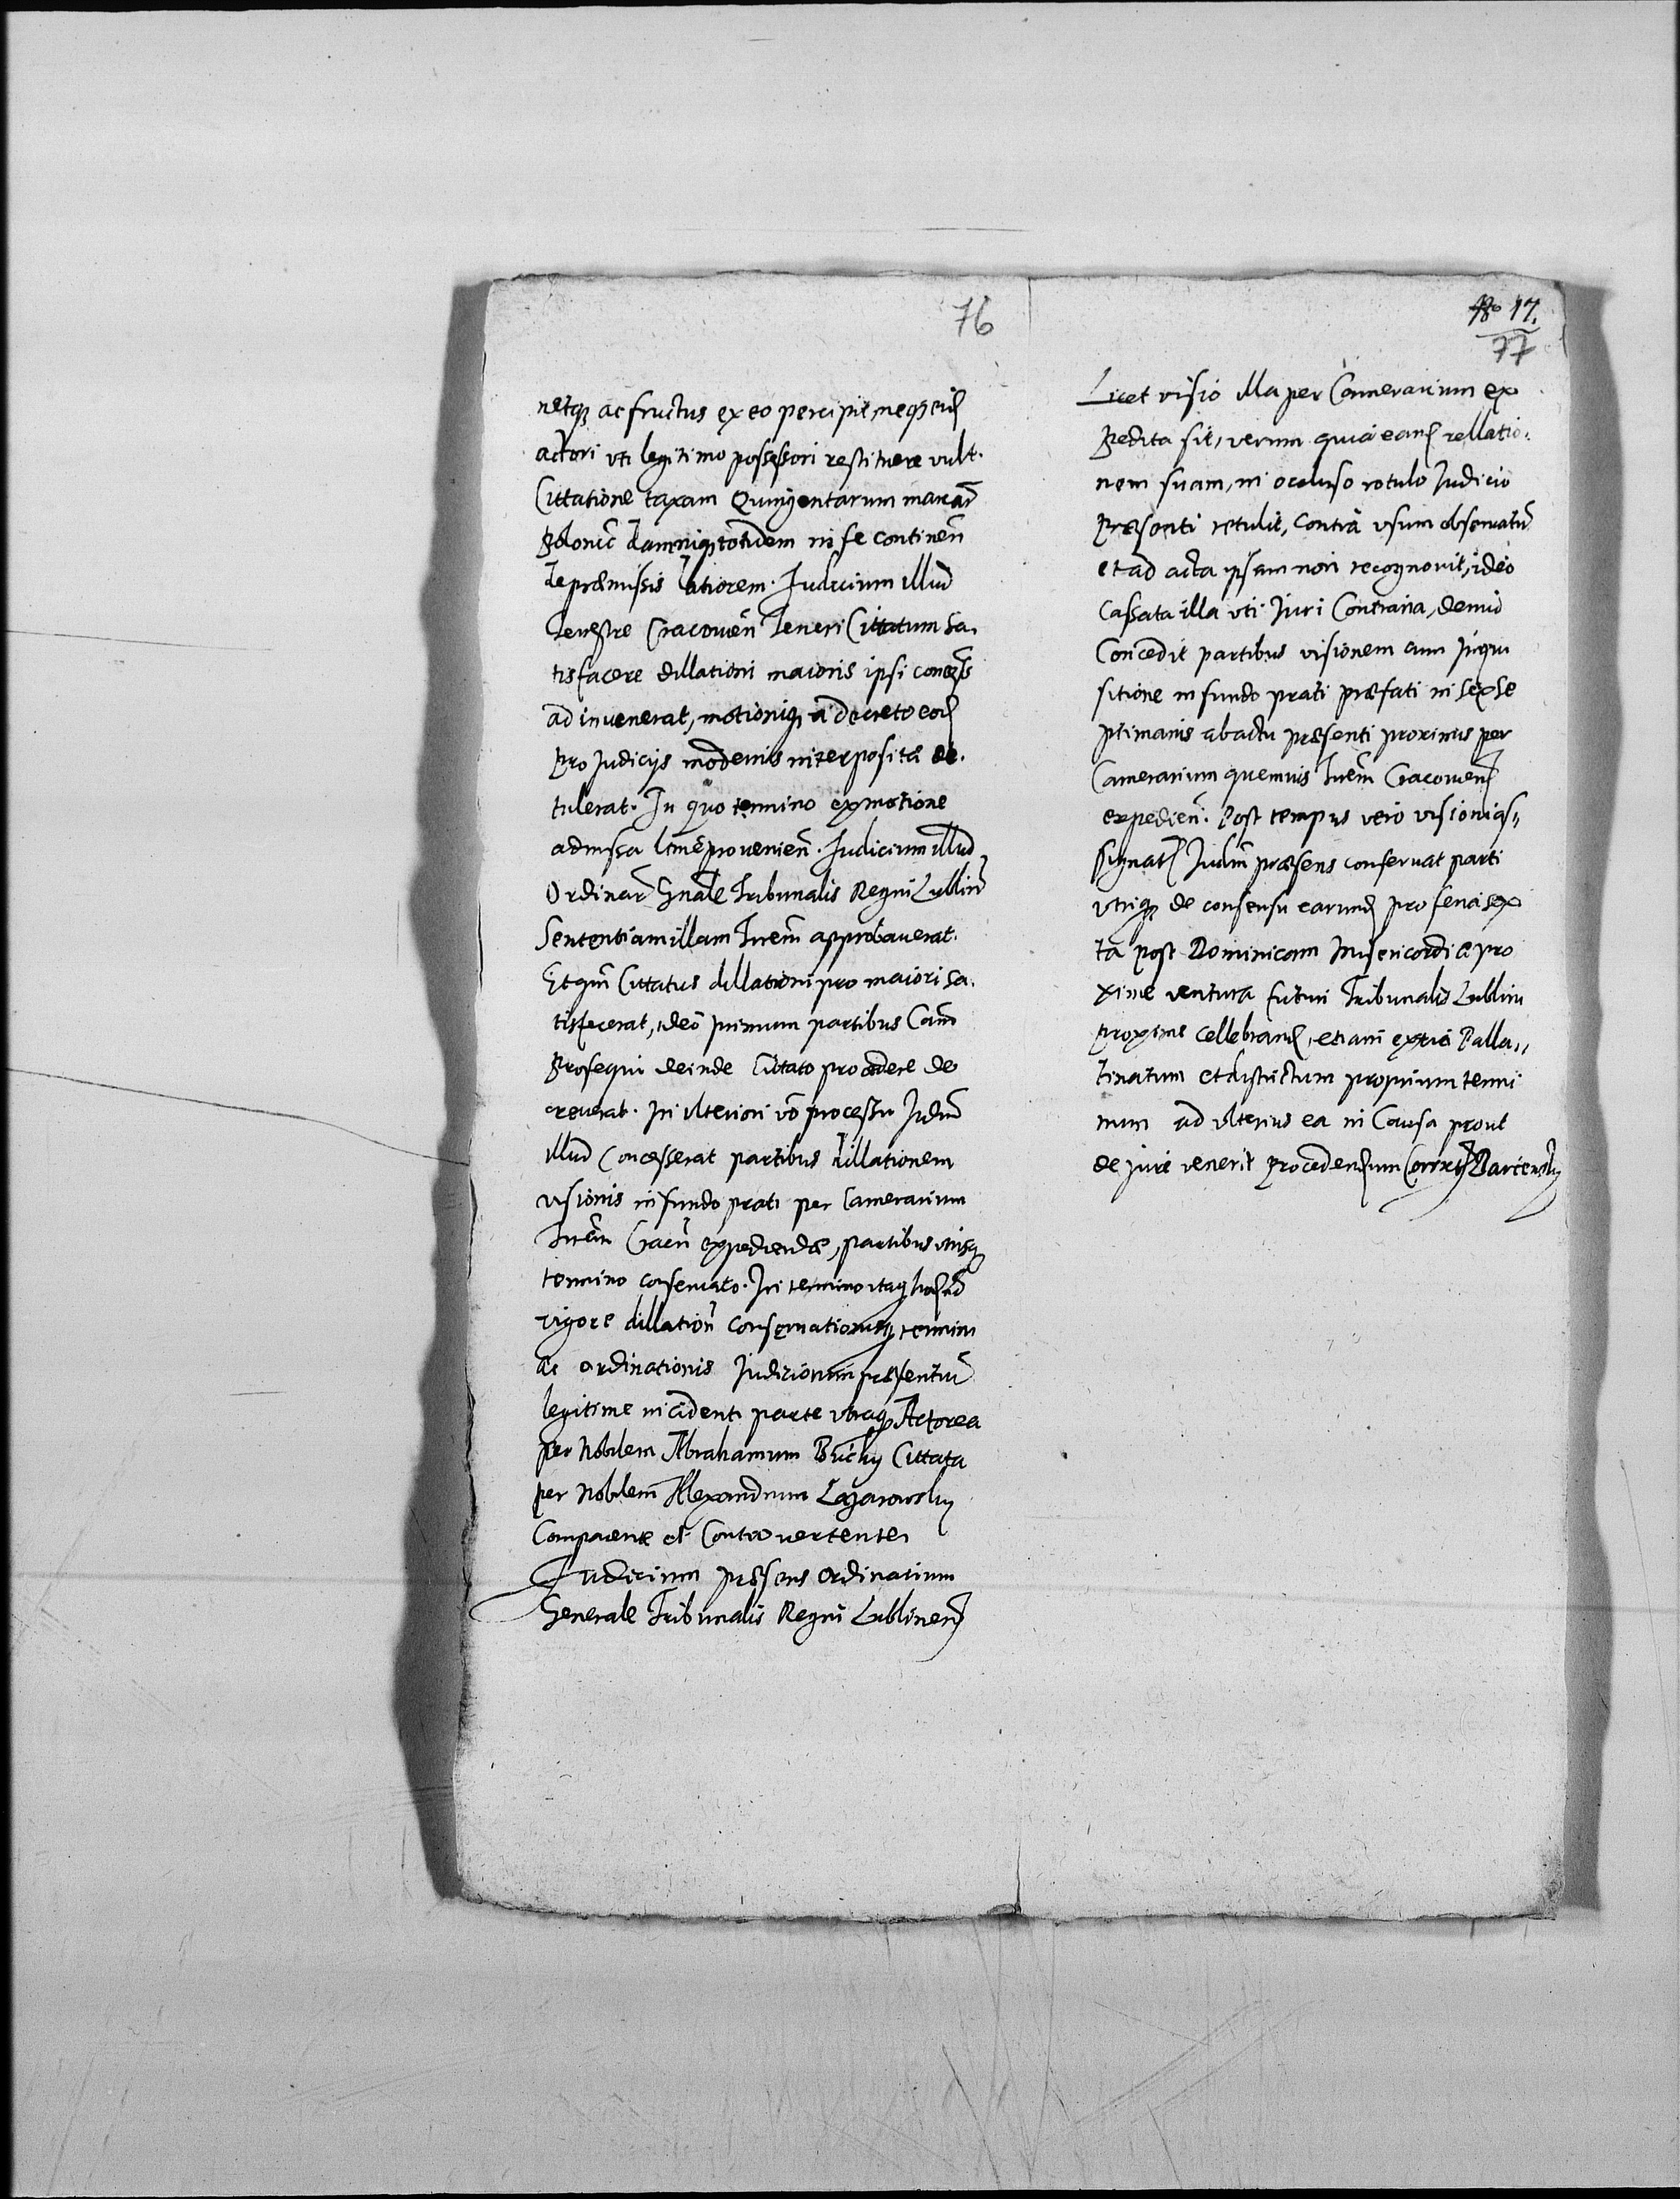 76
netq3 ac fructus ex eo percipit, neq3 eid
actori vti legitimo possessori restituere vult.
Cittatione taxam Quingentarum marcar
Polonic damniq3 totidem in se continen
de præmissis latiorem. Judicium illud
Terrestre Cracouien Teneri Cittatum sa.
tisfacere dillationi maioris ipsi concess
ad inuenerat, motioniq3 a decreto eod
pro Judicijs modernis interpositæ de.
tulerat. In quo termino ex motione
admissa ltme prouenien. Judicium illud
Ordinar Gnale Tribunalis Regni Lublin
Sententiam illam Trrem approbauerat.
Et qm Cittatus dillationi pro maiori sa.
tisfecerat, ideo primum partibus Cam
prosequi deinde Cittato procedere de
creuerat. In vlteriori vo processu Judm
illud Concesserat partibus dillationem
visionis in fundo prati per Camerarium
Trrem Cracn expediendæ, partibus vtrisq3
termino conseruato. In termino itaq3 hod
vigore dillation conseruationisq3 termini
ac ordinationis Judiciorum præsentiu
legitime incidenti parte vtraq3 Actorea
per Nobilem Abrahamum Buchy Cittata
per Nobilem Alexandrum Lazarowsky
Comparente et Controuertente,
Judicium præsens Ordinarium
Generale Tribunalis Regni Lublinen
17.
77
Licet visio illa per Camerarium ex
pedita sit, verum quia eand rellatio:
nem suam, in ocluso rotulo Judicio
præsenti retulit, contra vsum obseruatu
et ad acta ipsam non recognouit, ideo
Cassata illa vti Juri Contraria, denuo
Concedit partibus visionem cum Inqui
sitione in fundo prati præfati in sex se
ptimanis ab actu præsenti proximis per
Camerarium quemuis Trrem Cracouien
expedien. Post tempus vero visionis
signat Judm præsens conseruat parti
vtriq3 de consensu earund pro feria sex
ta post Dominicam Misericordiæ pro
xime ventura futuri Tribunalis Lublin
proxime cellebrand, etiam extra Palla,,
tinatum et districtum proprium termi
num ad vlterius ea in Causa prout
de jure venerit procedendum Correxit Darcensky